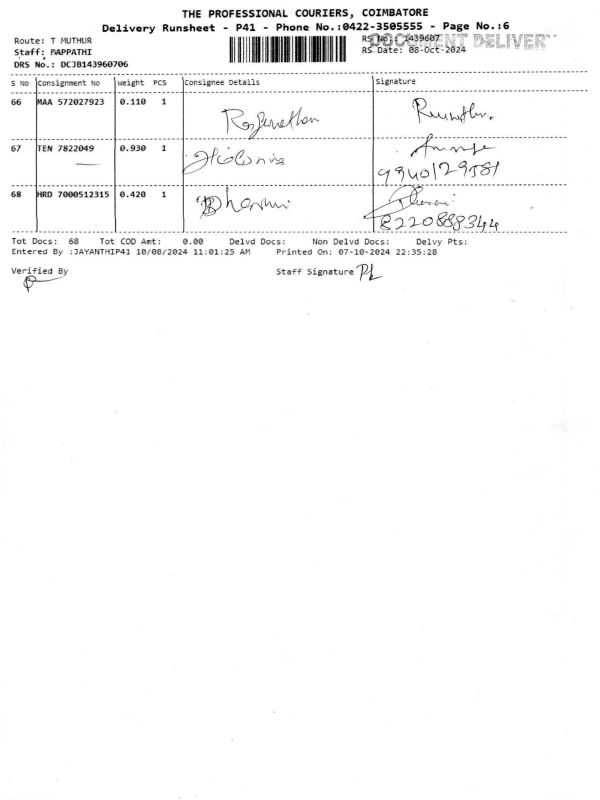 THE PROFESSIONAL COURIERS, COIMBATORE
Delivery Runsheet - P41 - Phone No.:0422-3505555 - Page No.:6
Route: T MUTHUR
RS No.: 1439607
DOCUMENT DELIVER
Staff: PAPPATHI
RS Date: 08-Oct-2024
DRS No.: DCJB143960706
S No Consignment No Weight PCS Consignee Details Signature
66 MAA 572027923 0.110 1
67 TEN 7822049 0.930 1
9940129581
68 HRD 7000512315 0.420 1 Dharani
8220888344
Tot Docs: 68 Tot COD Amt: 0.00 Delvd Docs: Non Delvd Docs: Delvy Pts:
Entered By :JAYANTHIP41 10/08/2024 11:01:25 AM Printed On: 07-10-2024 22:35:28
Verified By Staff Signature